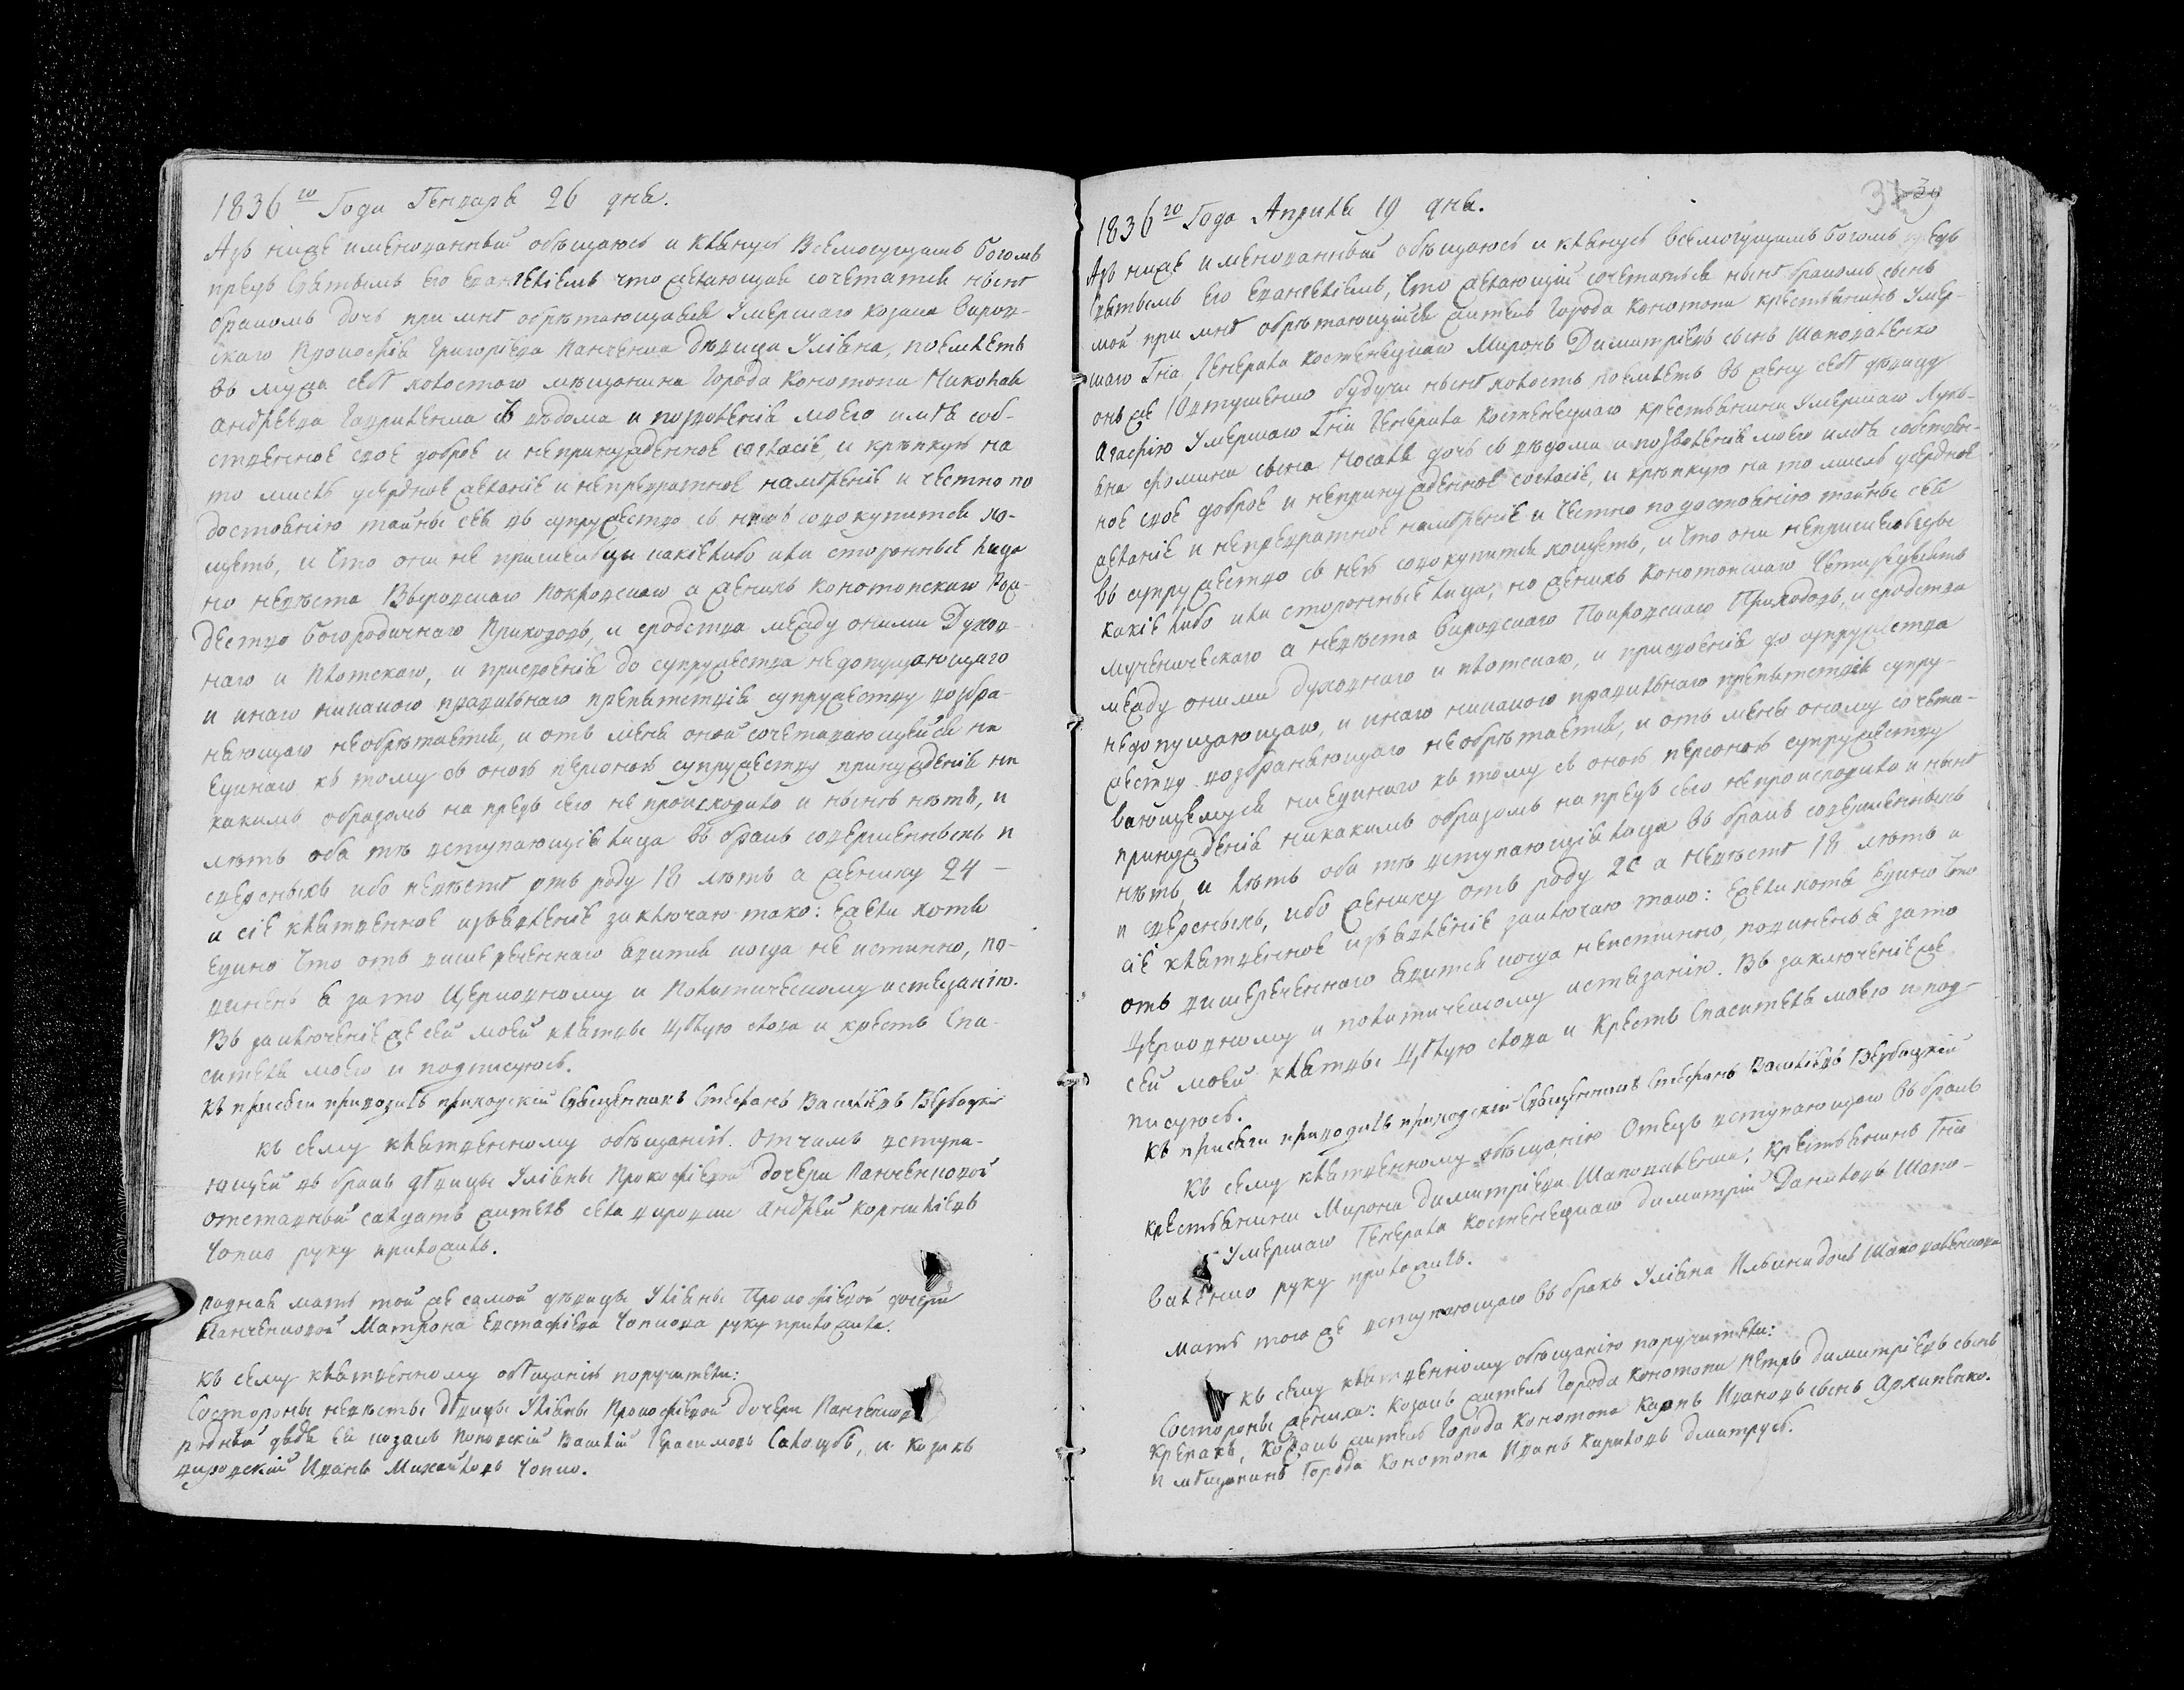 1836го Года Генваря 26 дня.
Азъ ниже именованный обѣщаюсь и клянусь Всемогущимъ Богомъ
предъ святымъ Его Евангеліемъ что желающая сочетатися нынѣ
бракомъ дочь при мнѣ обрѣтающаяся умершаго козака Виров-
скаго Прокофія Григоріева Панченка дѣвица Уліяна, поемлетъ
въ мужа себѣ холостаго мѣщанина Города Конотопа Николая
Андреева Гавриленка съ вѣдома и позволенія моего имѣя соб-
ственное свое доброе и непринужденное согласіе, и крѣпкую на
то мысль усердное желаніе и непревратное намѣреніе и честно по
достоянію тайны сея въ супружество съ нимъ совокупится хо-
щетъ, и что они не пришельцы какіелибо или сторонные лица
но невѣста Выровскаго Покровскаго а женихъ Конотопскаго Рож-
дество Богородичнаго Приходовъ, и сродства между оными Духов-
наго и Плотскаго, и присвоенія до супружества недопущающаго
и инаго никакого правильнаго препятствія супружеству возбра-
няющаго необрѣтается, и отъ меня оной сочетавающейся ни
единаго къ тому съ оною персоною супружеству принужденія ни
какимъ образомъ напредъ сего не происходило и нынѣ нѣтъ, и
лѣтъ оба тѣ вступающіе лица въ бракъ совершенныхъ и
сверсныхъ ибо невѣстѣ отъ роду 18 лѣтъ а жениху 24 —
и сіе клятвенное извѣвленіе заключаю тако: ежели хотя
едино что отъ вышереченнаго явится когда не истинно, по-
виненъ я зато Церковному и Политическому истязанію.
Въ заключеніе же сей моей клятвы цѣлую слова и крестъ Спа-
сителя моего и подписуюсь.
Къ присяги приводилъ приходскій священникъ Стефанъ Василіевъ Вербицкій
Къ сему клятвенному обѣщанію. Отчимъ вступа-
ющей въ бракъ дѣвицы Уліяны Прокофіевой дочери Панченковой
отставный салдатъ житель села Вировки Андрей Корниліевъ
Чопко руку приложилъ.
Родная мать той же самой дѣвицы Уліяны Прокофіевой дочери
Панченковой Матрона Евстафіева Чопкова руку приложила.
Къ сему клятвенному обѣщанію поручители:
Состороны невѣсты дѣвицы Уліяны Прокофіевой дочери Панченков
родный дядя ей козакъ Поповскій Василій Герасимовъ Салогубъ, и козакъ
вировскій Иванъ Михайловъ Чопко.
1836го Года Априля 19 дня.
Азъ ниже именованный обѣщаюсь и клянусь Всемогущимъ Богомъ предъ
святымъ Его Евангеліемъ, что желающій сочетатися нынѣ бракомъ сынъ
мой при мнѣ обрѣтающійся житель Города Конотопа крестьянинъ умер-
шаго Гна Генерала Костенецкаго Миронъ Димитріевъ сынъ Шаповаленко
онъ же Ювтушенко будучи нынѣ холостъ поемлетъ въ жену себѣ дѣвицу
Агафію умершаго Гна Генерала Костенецкаго крестьянина умершаго Лукь-
яна Фомина сына Носаля дочь съ вѣдома и позволенія моего имѣя собствен-
ное свое доброе и непринужденное согласіе, и крѣпкую на то мысль усердное
желаніе и непревратное намѣреніе и честно по достоянію тайны сея
въ супружество съ нею совокупится хощетъ, и что они непришельцы
какіе либо или сторонные лица, но женихъ Конотопскаго Четиредесять
мученическаго а невѣста Вировскаго Покровскаго Приходовъ, и сродства
между оными духовнаго и плотскаго, и присвоенія до супружества
недопущающаго, и инаго никакого правильнаго препятствія супру-
жеству возбраняющаго необрѣтается, и отъ меня оному сочета-
вающемуся ниединаго къ тому съ оною персоною супружеству
принужденія никакимъ образомъ на предъ сего непроисходило и нынѣ
нѣтъ, и лѣтъ оба тѣ вступающія лица въ бракъ совершенныхъ
и сверсныхъ, ибо жениху отъ роду а невѣстѣ 18 лѣтъ и
сіе клятвенное извѣвленіе заключаю тако: ежели хотя едино что
отъ вишереченнаго явится когда неистинно, повиненъ я зато
Церковному и политическому истязанію. Въ заключеніе же
сей моей клятвы цѣлую слова и Крестъ Спасителя моего и под-
писуюсь.
Къ присяги приводилъ приходскій священникъ Стефанъ Василіевъ Вербицкій
Къ сему клятвенному обѣщанію Отецъ вступающаго въ бракъ
крестьянина Мирона Димитріева Шаповаленка, крестьянинъ Гна
умершаго Генерала Костенецкаго Димитрій Даниловъ Шапо-
валенко руку приложилъ.
мать того же вступающаго въ бракъ Уліяна Ильина дочь Шаповаленкова
Къ сему клятвенному обѣщанію поручители:
Состороны жениха: козакъ житель Города Конотопа Петръ Димитріевъ сынъ
Крепакъ, козакъ житель Города Конотопа Карпъ Ивановъ сынъ Архипенко.
и мѣщанинъ Города Конотопа Иванъ Кириловъ Дмитрусь.